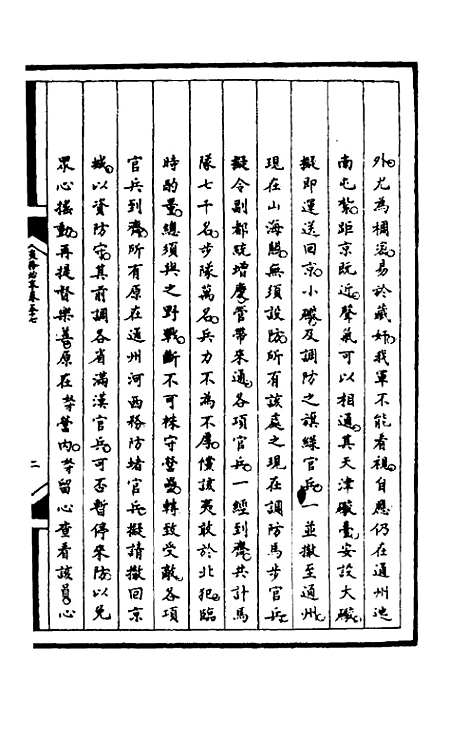 外尤為稠密易於藏奸我軍不能看視自應仍在通州迤
南屯紮距京既近聲氣可以相通其天津礮臺安設大礮
擬即運送回京小礮及調防之旗綠官兵一並撤至通州
現在山海關無須設防所有該處之現在調防馬步官兵
擬令副都統增慶管帶來通各項官兵一經到齊共計馬
隊七千名步隊萬名兵力不為不厚儻該夷敢於北犯臨
時酌量總須與之野戰斷不可株守營壘轉致受敵各項
官兵到齊所有原在通州河西務防堵官兵擬請撤回京
城以資防守其前調各省滿漢官兵可否暫停來防以免
眾心搖動再提督樂善原在芬營內芬留心查看該員心
二